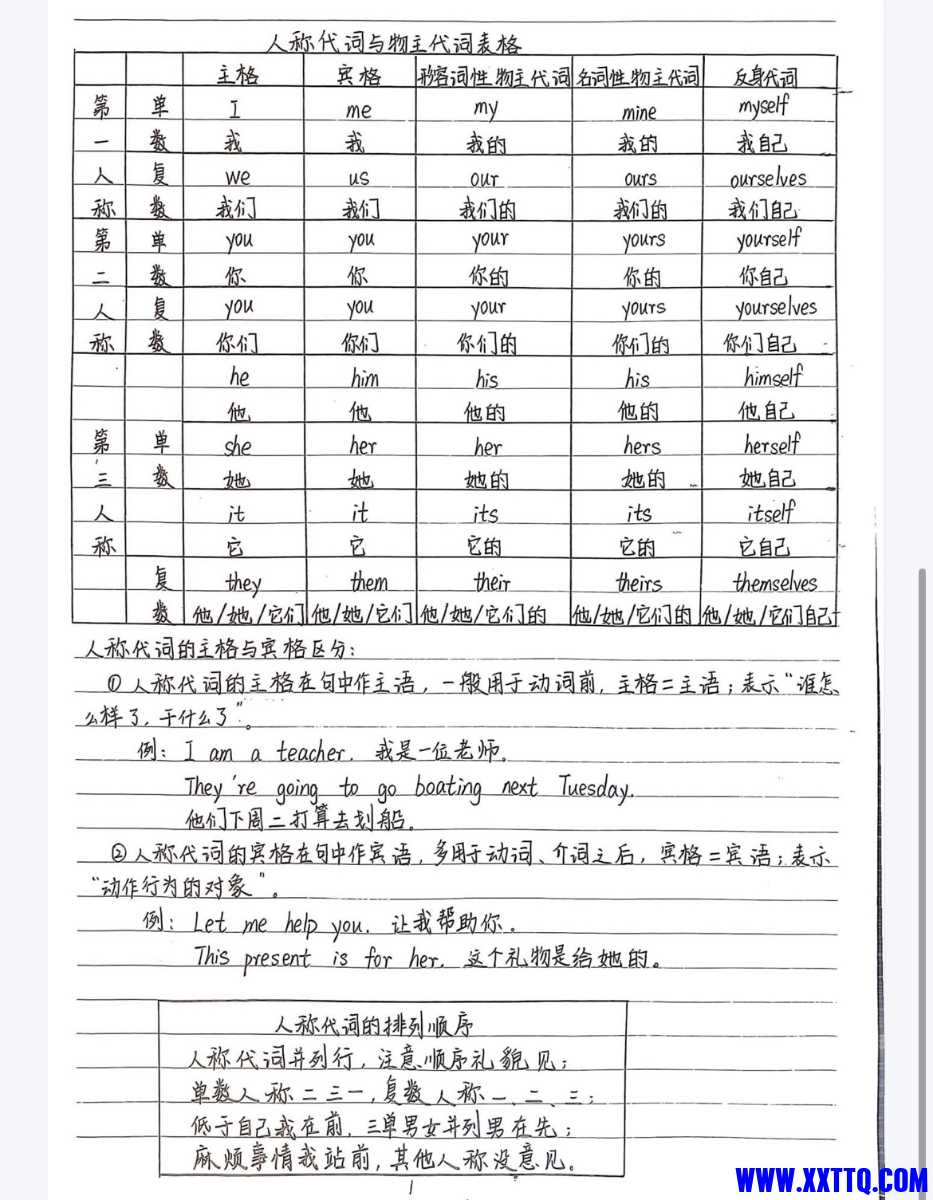 人称代词与物主代词表格
主格 宾格 形容词性物主代词 名词性物主代词 反身代词
第 单 I me my mine myself
一 数 我 我 我的 我的 我自己
人 复 we us our ours ourselves
称 数 我们 我们 我们的 我们的 我们自己
第 单 you you your yours yourself
二 数 你 你 你的 你的 你自己
人 复 you you your yours yourselves
称 数 你们 你们 你们的 你们的 你们自己
he him his his himself
他 他 他的 他的 他自己
第 单 she her her hers herself
三 数 她 她 她的 她的 她自己
人 it it its its itself
称 它 它 它的 它的 它自己
复 they them their theirs themselves
数 他/她/它们 他/她/它们 他/她/它们的 他/她/它们的 他/她/它们自己
人称代词的主格与宾格区分:
① 人称代词的主格在句中作主语,一般用于动词前,主格=主语;表示“谁怎
么样了,干什么了”。
例: I am a teacher. 我是一位老师.
They're going to go boating next Tuesday.
他们下周二打算去划船.
② 人称代词的宾格在句中作宾语,多用于动词、介词之后,宾格=宾语;表示
“动作行为的对象”。
例: Let me help you. 让我帮助你。
This present is for her. 这个礼物是给她的。
人称代词的排列顺序
人称代词并列行,注意顺序礼貌见;
单数人称二三一,复数人称一、二、三;
低于自己我在前,三单男女并列男在先;
麻烦事情我站前,其他人称没意见。
1
WWW.XXTTQ.COM